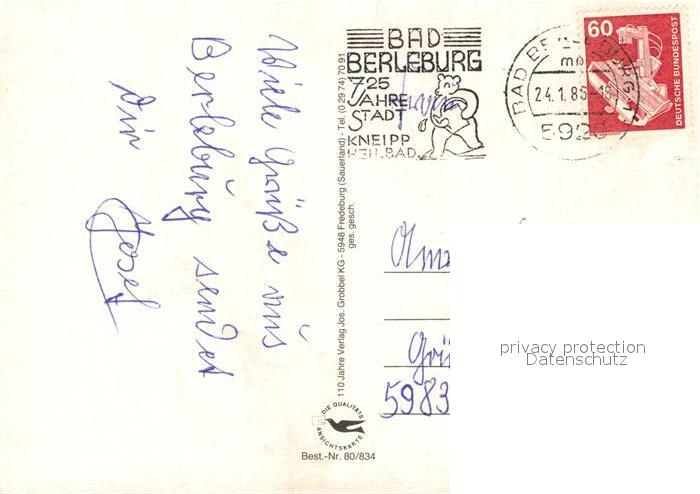 Viele Grüße aus
Berleburg sendet
Dir
Josef
110 Jahre Verlag Jos. Grobbel KG - 5948 Fredeburg (Sauerland) - Tel. (0 29 74) 70 91
ges. gesch.
DIE QUALITÄTS
ANSICHTSKARTE
Best.-Nr. 80/834
BAD
BERLEBURG
725
JAHRE
STADT
KNEIPP
HEILBAD
BAD BERLEBURG 1
mb
24.1.86
592
60
DEUTSCHE BUNDESPOST
5983
privacy protection
Datenschutz